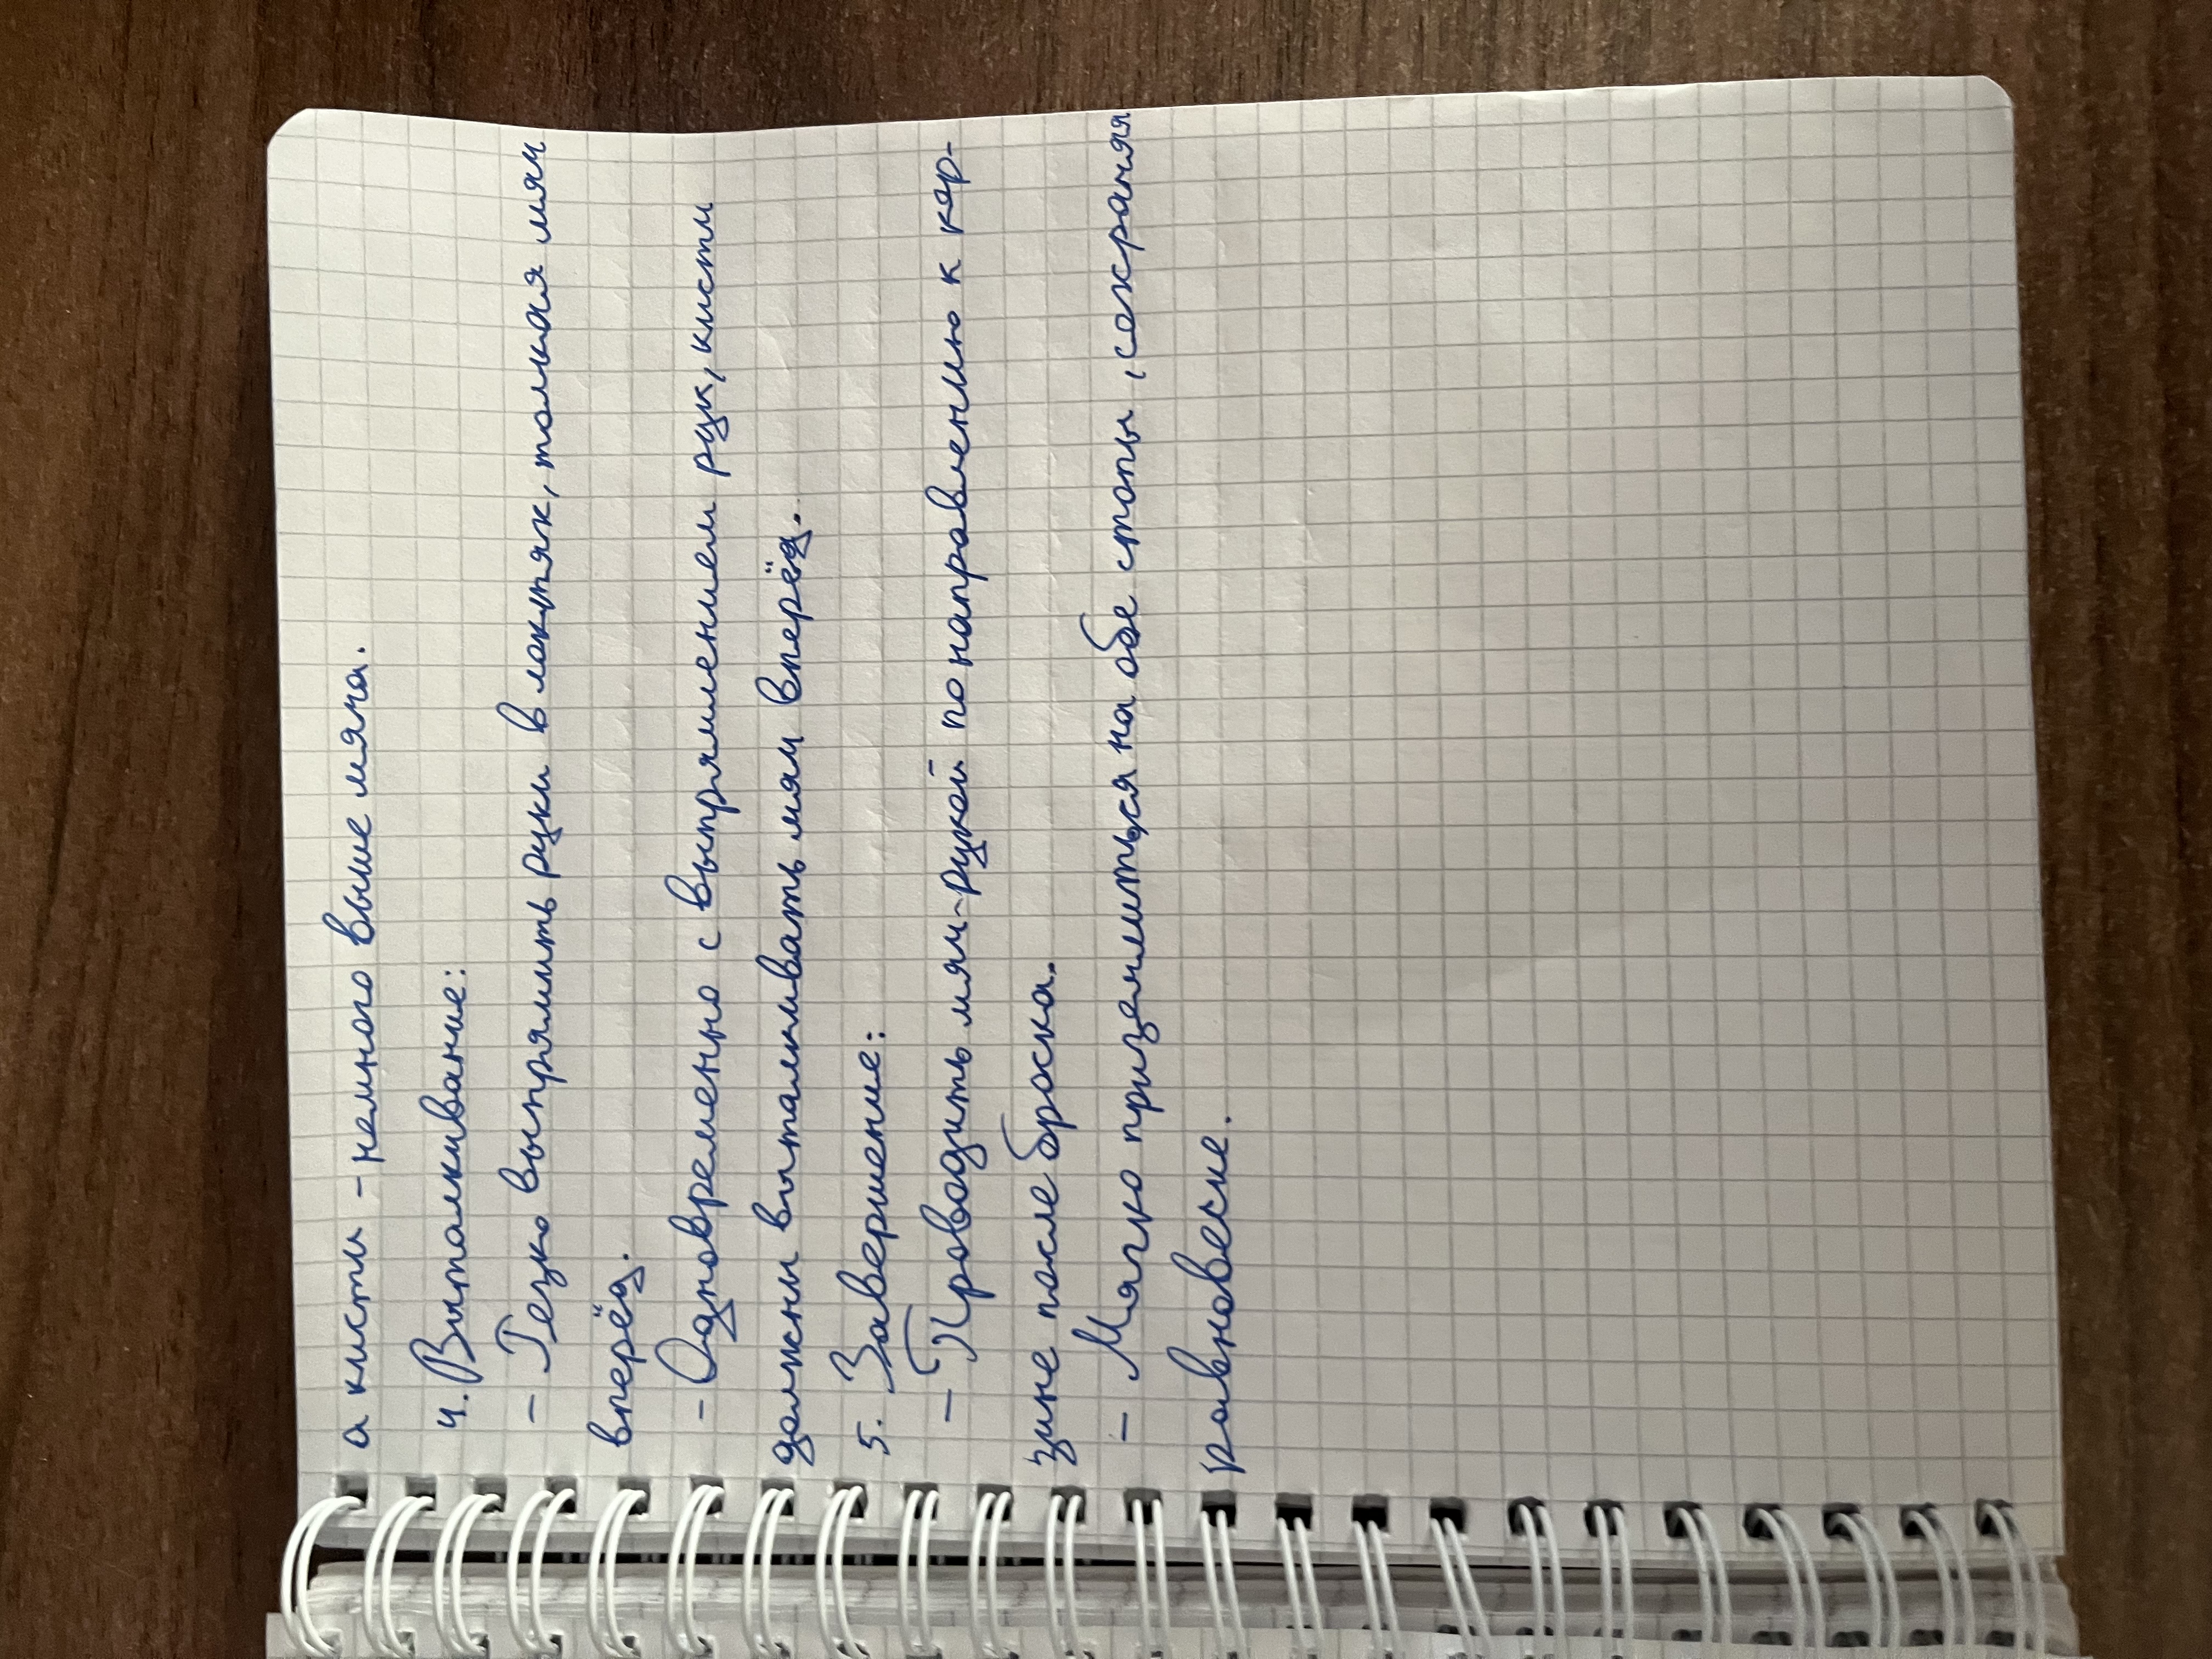 а кисти - немного выше мяча.
4. Выталкивание:
- Резко выпрямить руки в локтях, толкая мяч
вперёд.
- Одновременно с выпрямлением рук, кисти
должны выталкивать мяч вперёд.
5. Завершение:
- Проводить мяч рукой по направлению к кор-
зине после броска.
- Мягко приземлиться на обе стопы, сохраняя
равновесие.